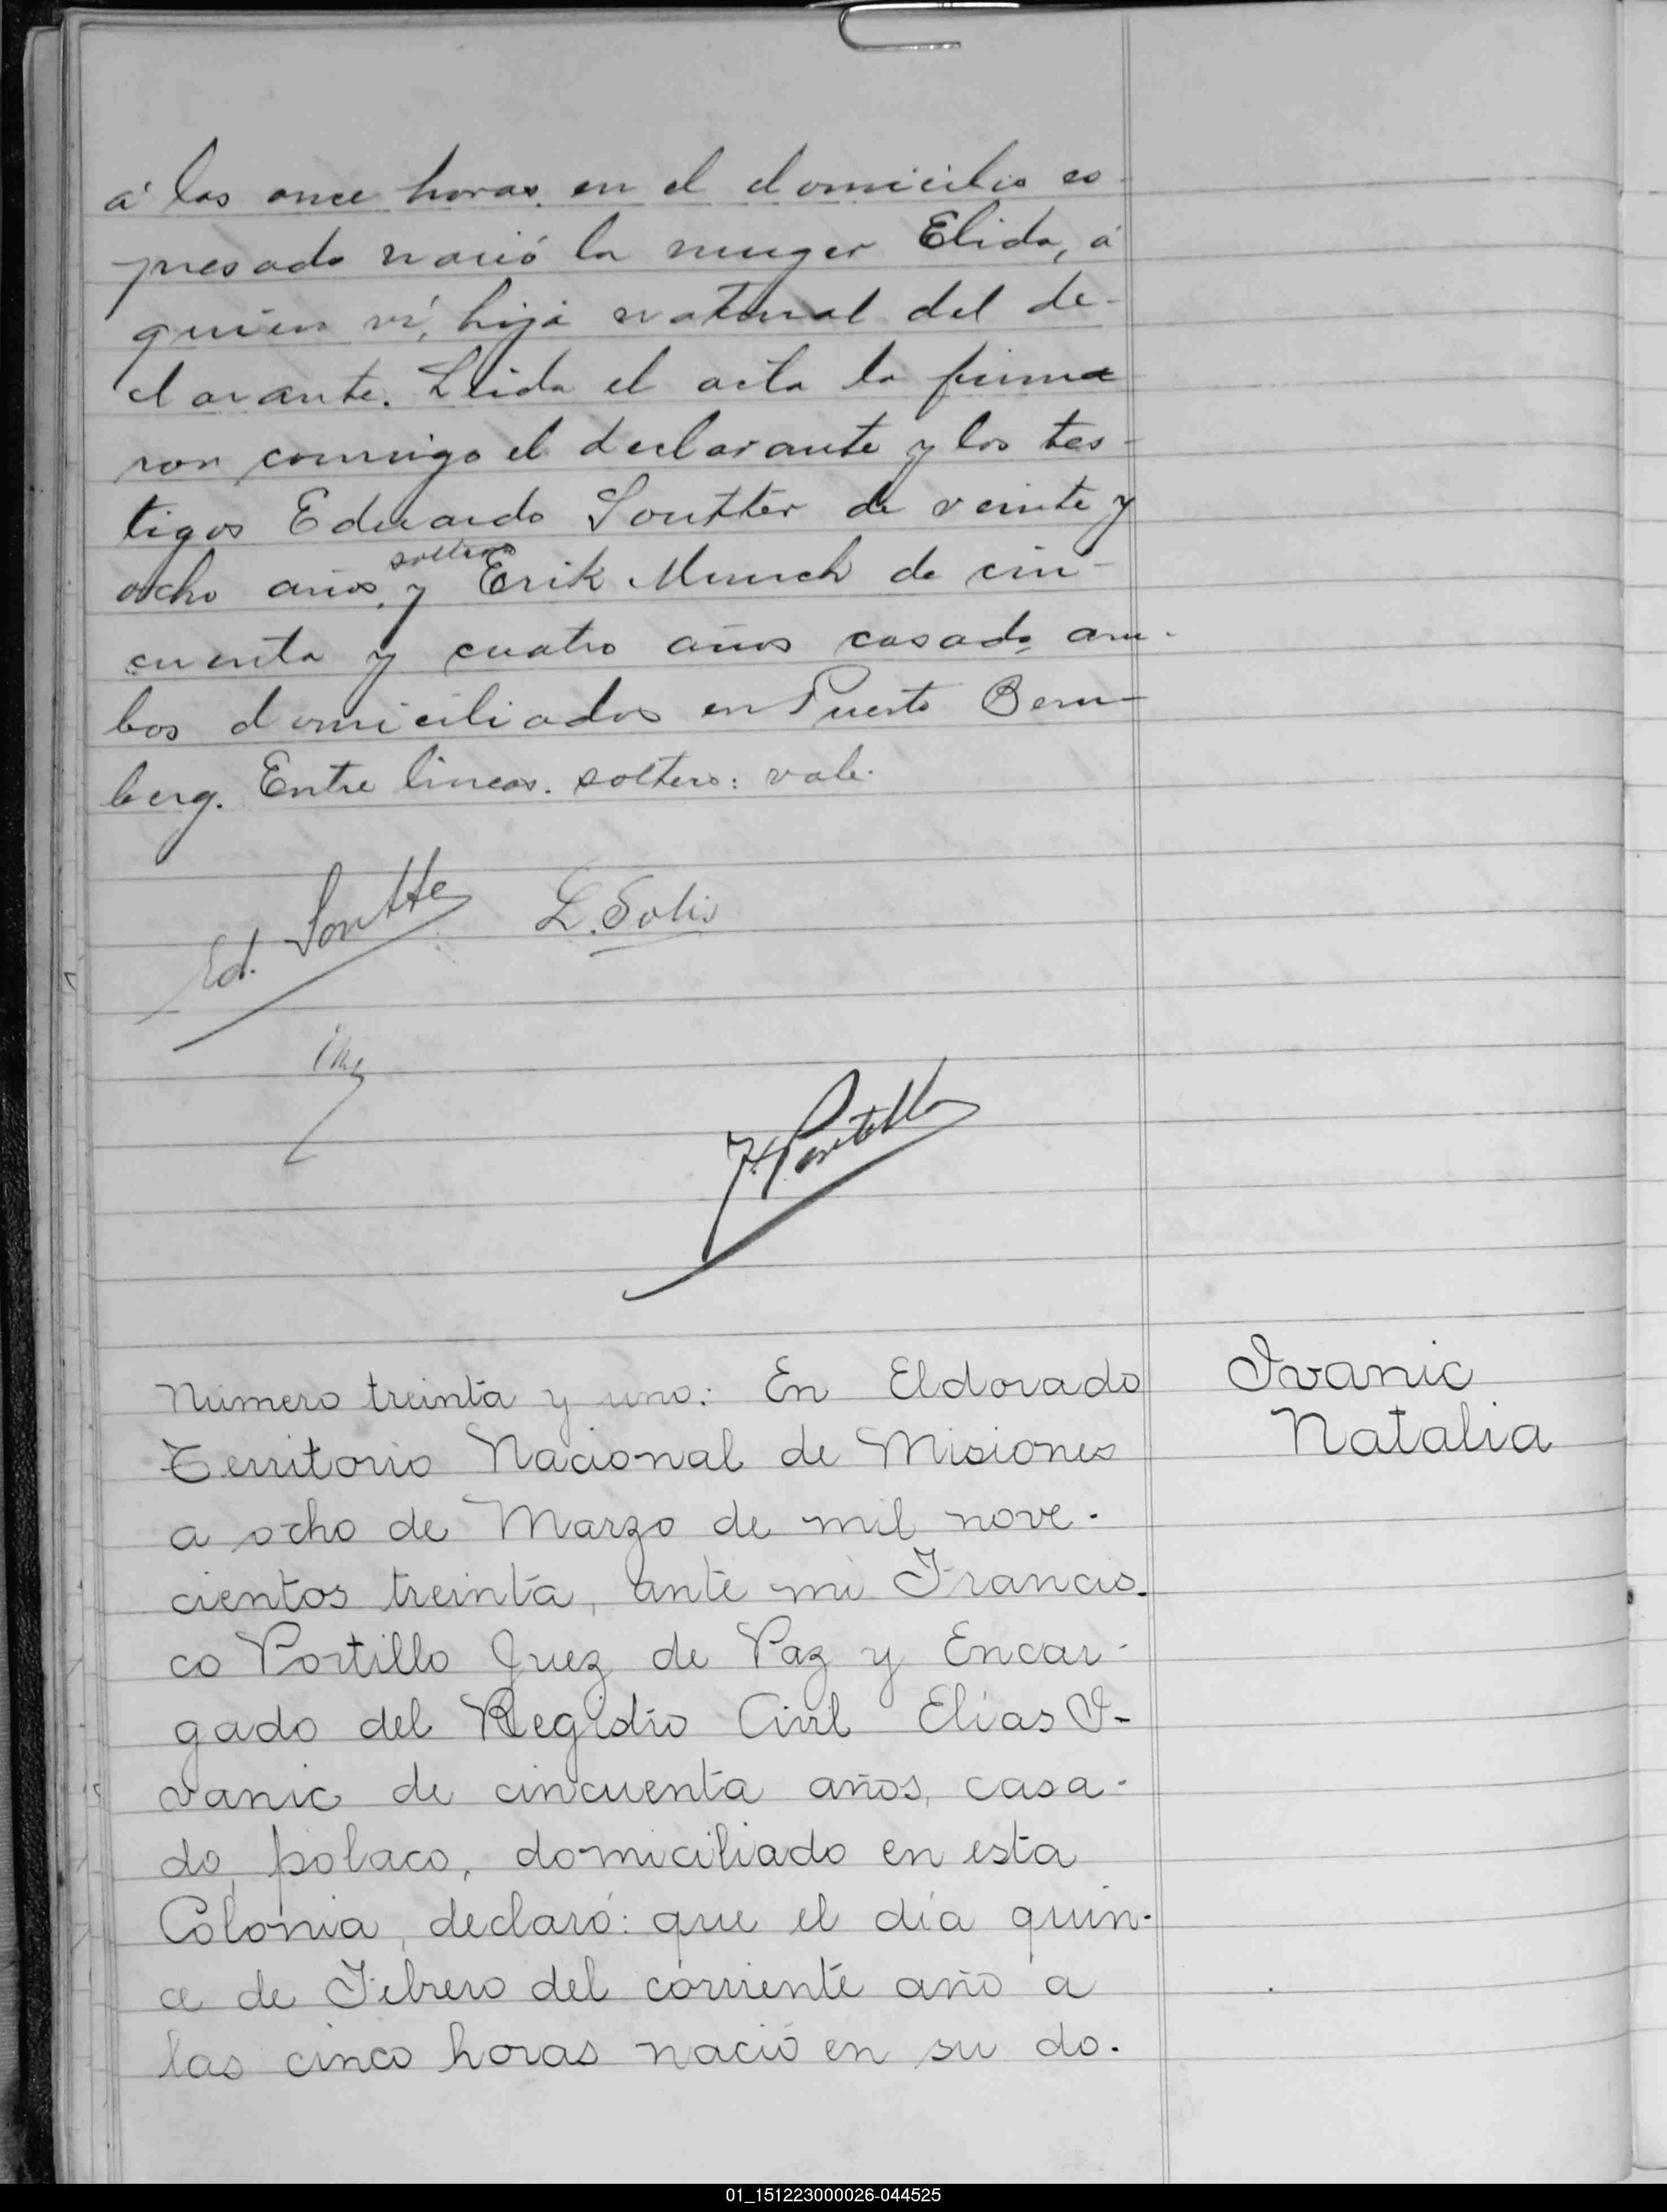 á las once horas, en el domicilio es-
presado nació la muger Elida, á
quien ví, hija natural del de-
clarante. Leida el acta la firma
ron conmigo el declarante y los tes-
tigos Eduardo Soutter de veinte y
soltero
ocho años, y Erik Munch de cin-
cuenta y cuatro años casado, am-
bos domiciliados en Puerto Bem-
berg. Entre lineas. soltero: vale.
Ed. Soutter L. Solis
F. Portillo
Número treinta y uno: En Eldorado
Territorio Nacional de Misiones
a ocho de Marzo de mil nove-
cientos treinta, ante mi Francis-
co Portillo Juez de Paz y Encar-
gado del Registro Civil Elías I-
vanic de cincuenta años, casa-
do, polaco, domiciliado en esta
Colonia, declaró: que el día quin-
ce de Febrero del corriente año a
las cinco horas nació en su do-
Ivanic
Natalia
01_151223000026-044525